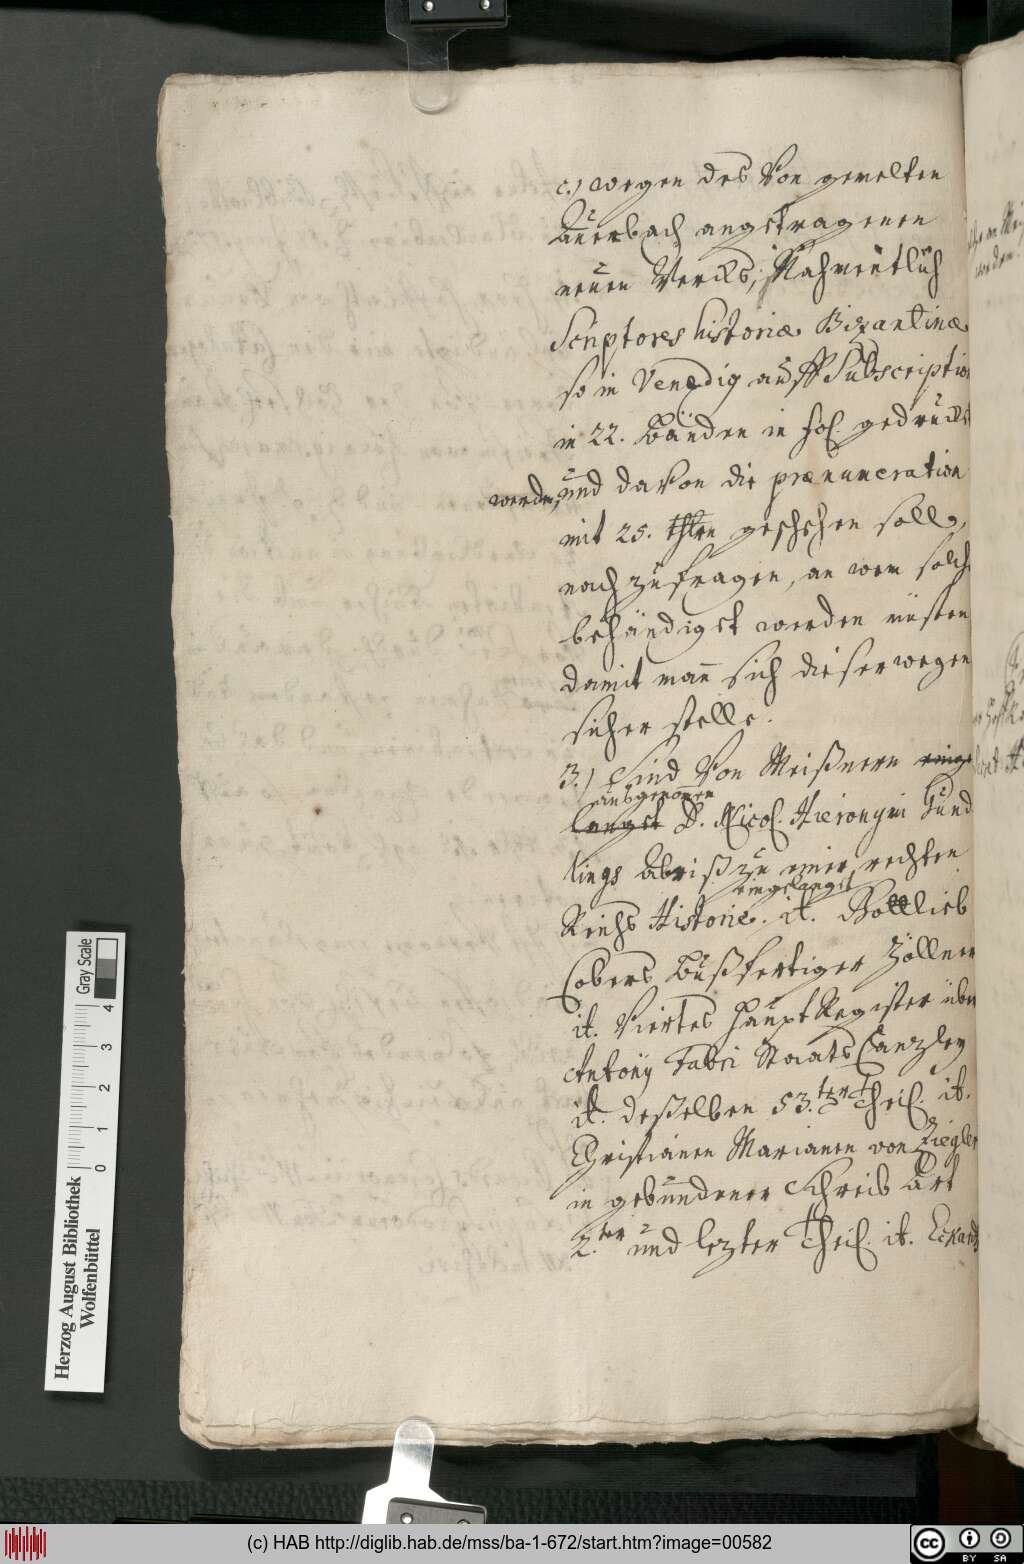 c.) wegen des von gemelten
Auerbach angetragenen
neuen Wercks, Nahmentlich
Scriptores historiæ Bizantinæ
so in Venedig auff Subscription
in 22. Bänden in fol. gedruckt
werden, und davon die prænumeration
mit 25. thlrn geschehen soll,
nach zufragen, an wem solche
behändiget werden müsten
damit man sich dieserwegen
sicher stelle.
3.) Sind von Meißnern einge
langt ausgenomen D. Nicol. Hieronymi Gund
lings Abriß zu einer rechten
Reichs Historie. eingelangt it. Gottlieb
Cobers Bußfertiger Zöllner
it. Viertes Haupt Register über
Antonij Fabri Staats Canzley
it. deßelben 53.ter Theil. it.
Christianen Marianen von Ziegler
in gebundener Schreib Art
2.ter und lezter Theil. it. Eckards
Herzog August Bibliothek
Wolfenbüttel
Gray Scale
0 1 2 3 4
(c) HAB http://diglib.hab.de/mss/ba-1-672/start.htm?image=00582
cc BY SA